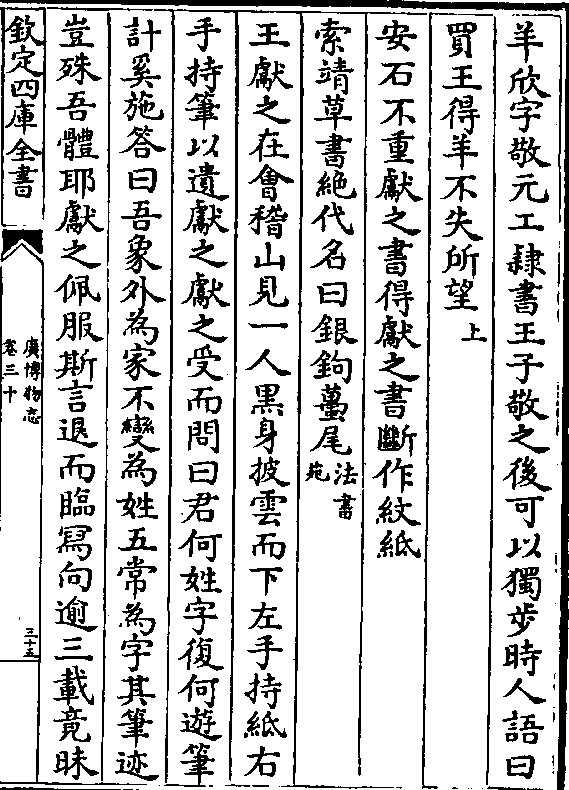 羊欣字敬元工隷書王子敬之後可以獨步時人語曰
買王得羊不失所望上
安石不重獻之書得獻之書斷作紋紙
索靖草書絶代名曰銀鉤蠆尾法書苑
王獻之在會稽山見一人黒身披雲而下左手持紙右
手持筆以遺獻之獻之受而問曰君何姓字復何遊筆
計奚施答曰吾象外為家不變為姓五常為字其筆迹
豈殊吾體耶獻之佩服斯言退而臨寫向逾三載竟昧
欽定四庫全書
廣博物志
卷三十
三十五